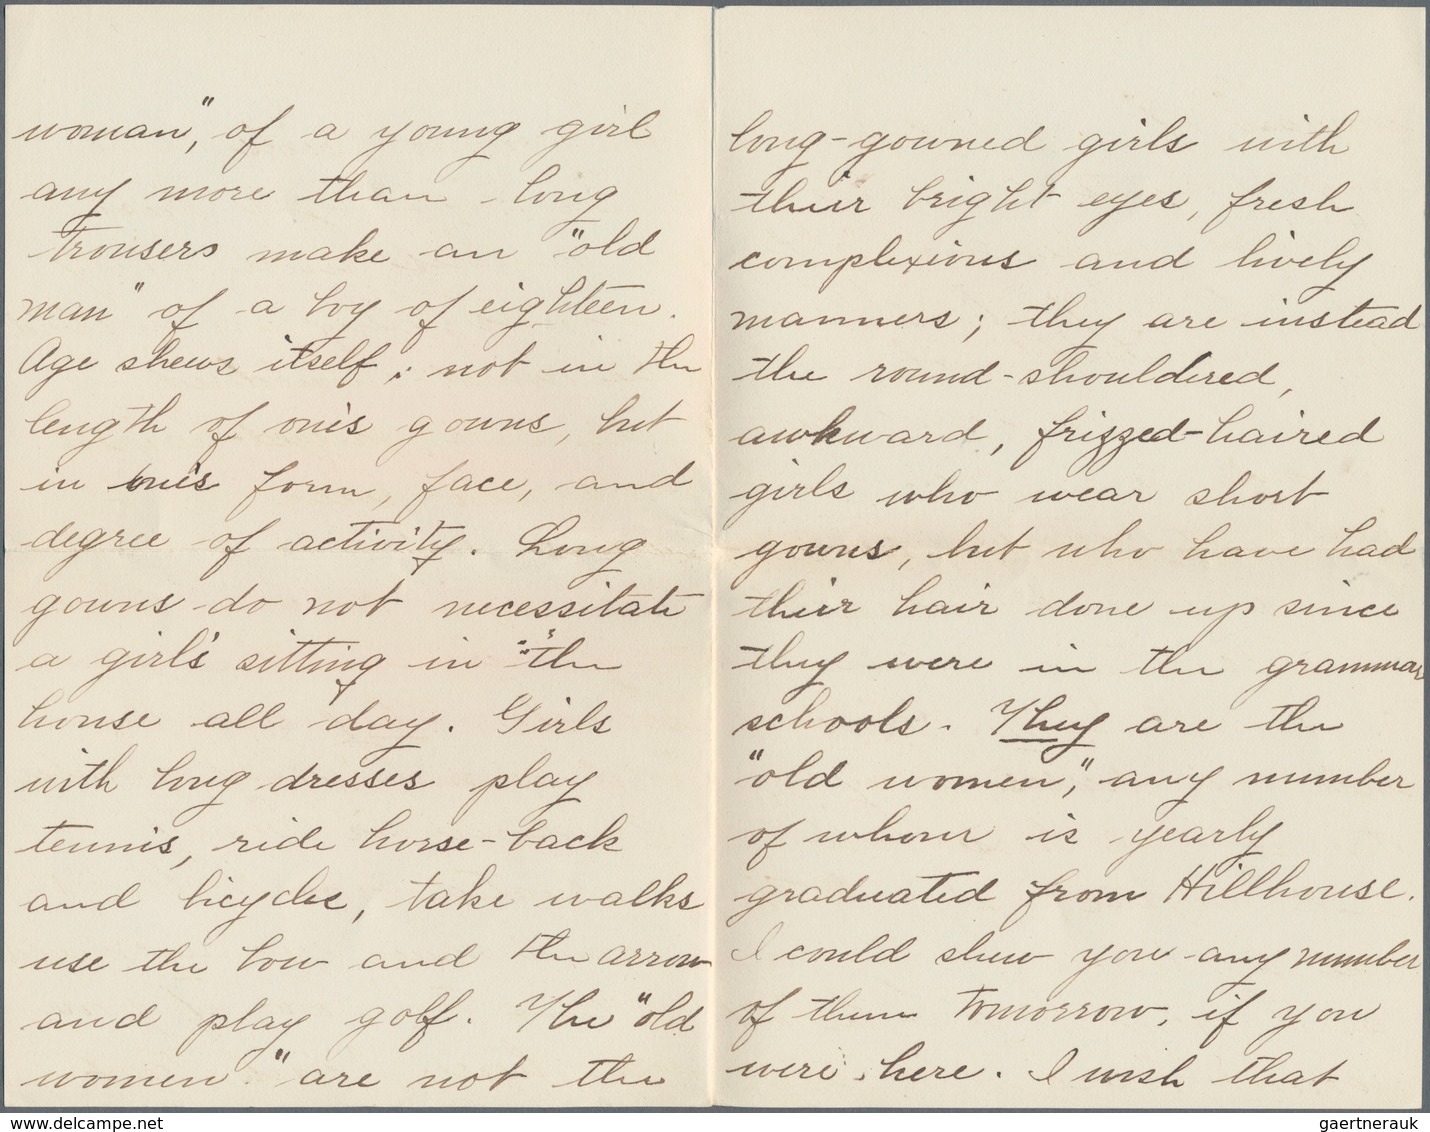 woman", of a young girl
any more than long
trousers make an "old
man" of a boy of eighteen.
Age shews itself; not in the
length of one's gowns, but
in one's form, face, and
degree of activity. Long
gowns do not necessitate
a girl's sitting in the
house all day. Girls
with long dresses play
tennis, ride horse-back
and bicycles, take walks
use the bow and the arrow
and play golf. The "old
women" are not the
long-gowned girls with
their bright eyes, fresh
complexions and lively
manners; they are instead
the round-shouldered,
awkward, frizzed-haired
girls who wear short
gowns, but who have had
their hair done up since
they were in the grammar
schools. They are the
"old women", any number
of whom is yearly
graduated from Hillhouse.
I could shew you any number
of them tomorrow, if you
were here. I wish that
www.delcampe.net
gaertnerauk